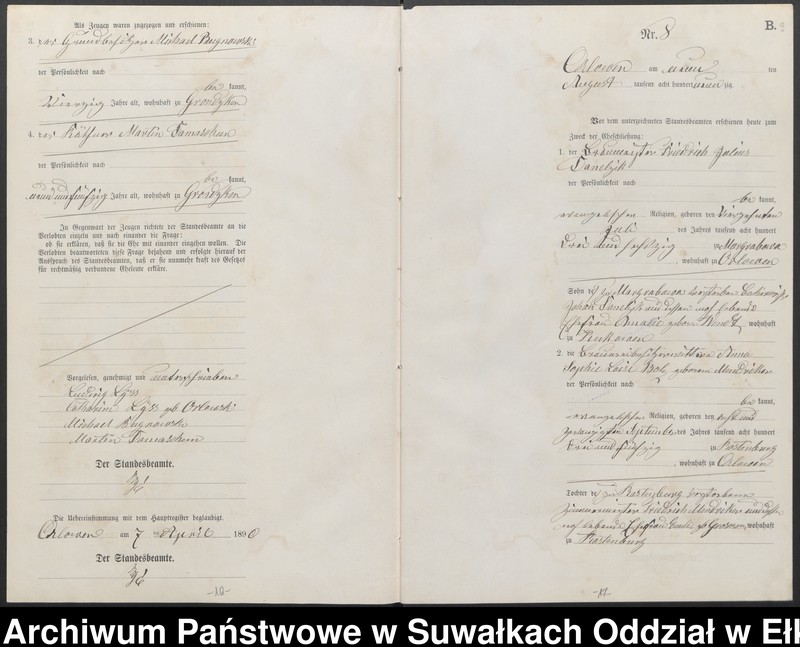 Als Zeugen waren zugezogen und erschienen:
3. der Grundbesitzer Michael Bugnowski
der Persönlichkeit nach
be kannt,
Vierzig Jahre alt, wohnhaft zu Grondzken
4. der Käthner Martin Tamaschun
der Persönlichkeit nach
be kannt,
neun und fünfzig Jahre alt, wohnhaft zu Grondzken
In Gegenwart der Zeugen richtete der Standesbeamte an die
Verlobten einzeln und nach einander die Frage:
ob sie erklären, daß sie die Ehe mit einander eingehen wollen. Die
Verlobten beantworteten diese Frage bejahend und erfolgte hierauf der
Ausspruch des Standesbeamten, daß er sie nunmehr kraft des Gesetzes
für rechtmäßig verbundene Eheleute erkläre.
Vorgelesen, genehmigt und unterschrieben
Ludwig
Catharine gb Orlowski
Michael Bugnowski
Martin Tamaschun
Der Standesbeamte.
Die Uebereinstimmung mit dem Hauptregister beglaubigt.
Orlowen am 7 ten April 1890
Der Standesbeamte.
-10-
B.
Nr. 8
Orlowen am neun ten
August tausend acht hundert neun zig.
Vor dem unterzeichneten Standesbeamten erschienen heute zum
Zweck der Eheschließung:
1. der Braumeister Friedrich Julius
Danelzik
der Persönlichkeit nach
be kannt,
evangelischer Religion, geboren den vierzehnten
Juli des Jahres tausend acht hundert
drei und sechszig zu Marggrabowa
, wohnhaft zu Orlowen
Sohn des zu Marggrabowa verstorbenen
Jakob Danelzik und dessen noch lebende
Ehefrau Amalie geborene , wohnhaft
zu
2. die Brauereibesitzerwittwe Anna
Sophie Luise geborene Mendrikor
der Persönlichkeit nach
be kannt,
evangelischer Religion, geboren den acht und
zwanzigsten September des Jahres tausend acht hundert
drei und fünfzig zu Rastenburg
, wohnhaft zu Orlowen
Tochter des zu Rastenburg verstorbenen
Zimmermeister Friedrich Mendrikor und dessen
noch lebende Ehefrau gb , wohnhaft
zu Rastenburg
-11-
Archiwum Państwowe w Suwałkach Oddział w Ełk